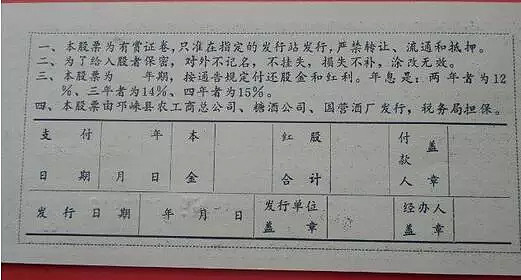 一、本股票为有赏证卷,只准在指定的发行站发行,严禁转让、流通和抵押。
二、为了给入股者保密,对外不记名,不挂失,损失不补,涂改无效。
三、本股票为 年期,按通告规定付还股金和红利。年息是:两年者为12
%、三年者为14%、四年者为15%。
四、本股票由邛崃县农工商总公司、糖酒公司、国营酒厂发行,税务局担保。
支付 年 本 红股 付 盖
款
日期 月 日 金 合计 人 章
发行日期 年 月 日 发行单位 经办人
盖章 盖章